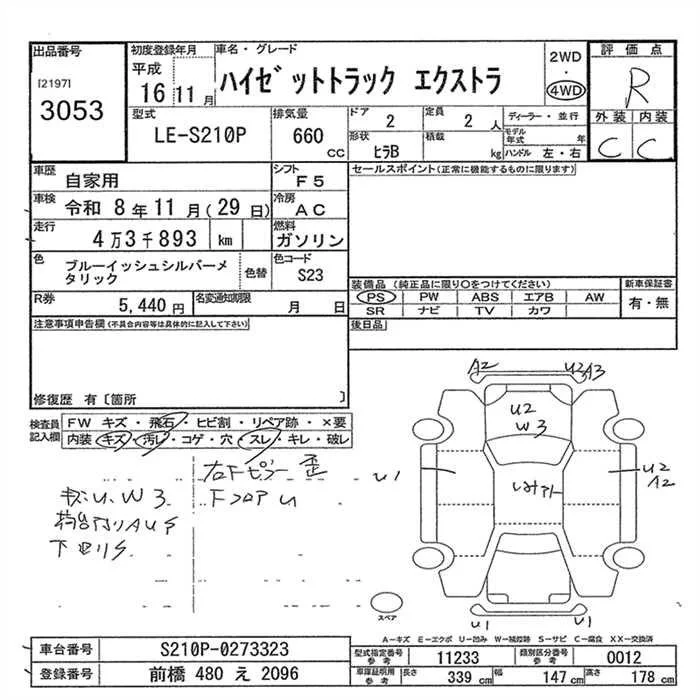 出品番号
[2197]
3053
初度登録年月
平成
16 11 月
車名・グレード
ハイゼットトラック エクストラ
2WD
・
4WD
評価点
R
外装 内装
C C
型式
LE-S210P
排気量
660
CC
ドア
2
定員
2 人
形状
ヒラB
積載
kg
ディーラー・並行
モデル年式 年
ハンドル 左・右
車歴
自家用
シフト
F5
車検
令和 8年11月(29日)
冷房
AC
走行
4万3千893 km
燃料
ガソリン
色
ブルーイッシュシルバーメタリック
色替
色コード
S23
R券
5,440 円
名変通知期限
月 日
セールスポイント(正常に機能するものに限ります)
装備品 (純正品に限り○をつけてください)
新車保証書
PS PW ABS エアB AW
有・無
SR ナビ TV カワ
後日品
注意事項申告欄 (不具合内容等は具体的に記入して下さい)
修復歴 有〔箇所 〕
検査員記入欄
FW キズ・飛石・ヒビ割・リペア跡・×要
内装 キズ・汚レ・コゲ・穴・スレ・キレ・破レ
右Fピラー 歪
FフロアU
キズU、W3
下回りS
A2
U2A3
U2
W3
U1
U2
A2
U1
U1
スペア
A−キズ E−エクボ U−凹み W−補修跡 S−サビ C−腐食 XX−交換済
車台番号
S210P-0273323
登録番号
前橋 480 え 2096
型式指定番号 参考
11233
類別区分番号 参考
0012
車庫証明用 参考
長さ 339 cm 幅 147 cm 高さ 178 cm